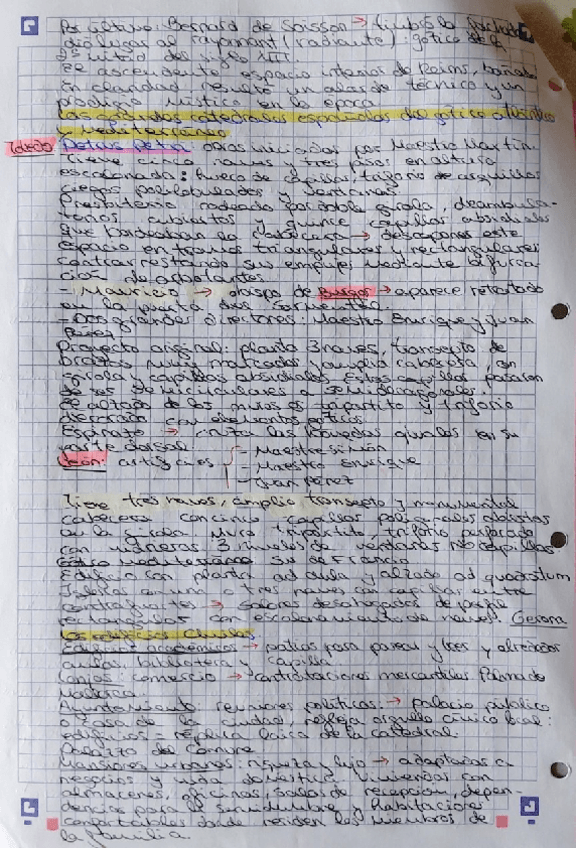 Por último: Bernard de Soisson → timbró la fachada
dio lugar al rayonnant (radiante): gótico de la
2ª mitad del siglo XIII.
El ascendente espacio interno de Reims, bañado
en claridad, resultó un alarde técnico y un
prodigio místico en la época
Las grandes catedrales españolas del gótico atlántico
y mediterráneo
Toledo: Petrus Petri obras iniciadas por Maestro Martín.
Tiene cinco naves y tres pisos en altura
escalonada: hueco de capillas, triforio de arquillos
ciegos polilobulados y ventanas
Presbiterio rodeado por doble girola, deambula-
torios cubiertos y quince capillas absidiales
que bordeaban la cabecera → descompones este
espacio en tramos triangulares y rectangulares
contrarrestando sus empujes mediante bifurca-
ción de arbotantes
- Mauricio → obispo de Burgos → aparece retratado
en la puerta del Sarmental.
- Dos grandes directores: Maestro Enrique y Juan
Pérez
Proyecto original: planta 3 naves, transepto de
brazos muy marcados, amplia cabecera, con
girola y capillas absidiales. Estas capillas pasaron
de ser semicirculares a semidecagonales.
El alzado de los muros es tripartito y triforio
Espinazo → cruza las bóvedas ojivales en su
parte dorsal
León: artífices
- Maestre Simón
- Maestro Enrique
- Juan Pérez
Tiene tres naves, amplio transepto y monumental
cabecera con cinco capillas poligonales abiertas
en la girola. Muro tripartito, triforio perforado
con vidrieras: 3 niveles de ventanas no capillas
Gótico mediterráneo Sur de Francia
Edificio con planta ad aula y alzado ad quadratum
Iglesias en una o tres naves con capillas entre
contrafuertes → salones desahogados de perfil
rectangular con escalonamiento de naves. Gerona
Los edificios civiles
Edificios académicos → patios para pasear y leer y alrededor
aulas, biblioteca y capilla
Lonjas: comercio → contrataciones mercantiles. Palma de
Mallorca.
Ayuntamiento: reuniones políticas → palacio público
o casa de la ciudad, refleja orgullo cívico local:
edificios = réplica laica de la catedral.
Palazzo del Comune
Mansiones urbanas: riqueza, lujo → adaptadas a
negocios y vida doméstica. Viviendas con
almacenes, oficinas, salas de recepción, depen-
dencias para la servidumbre y habitaciones
confortables donde residen los miembros de
la familia.